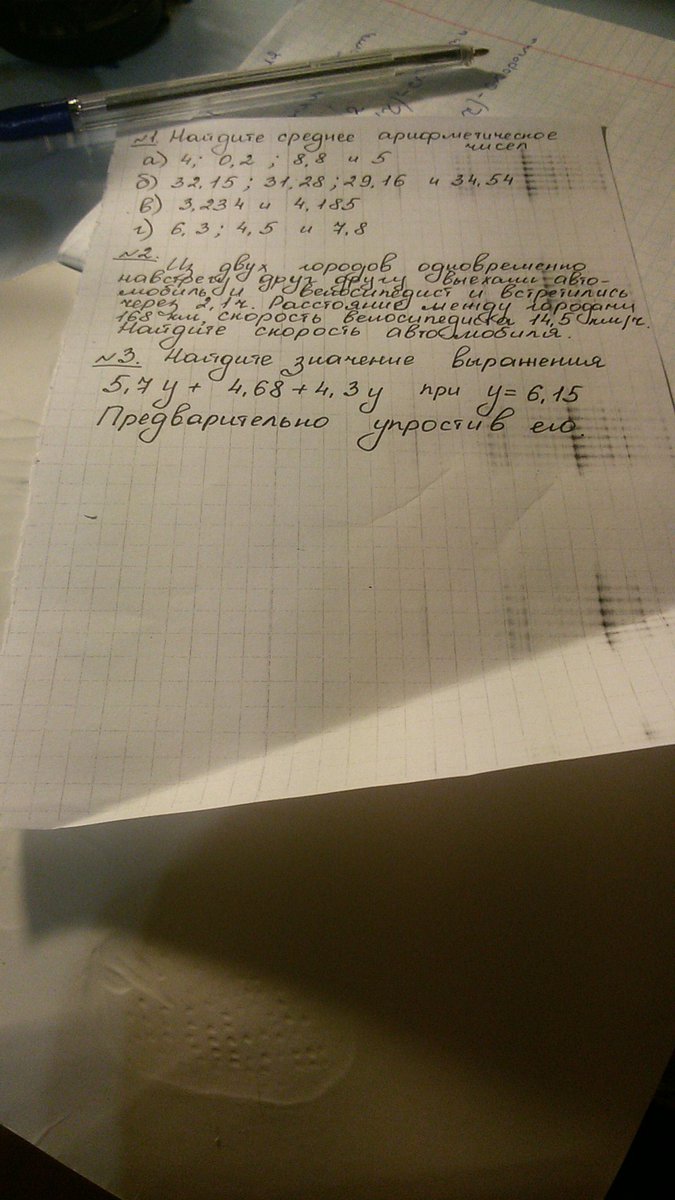 2)-скорость
№1. Найдите среднее арифметическое
чисел
а) 4; 0,2 ; 8,8 и 5
б) 32,15 ; 31,28 ; 29,16 и 34,54
в) 3,234 и 4,185
г) 6,3 ; 4,5 и 7,8
№2.
Из двух городов одновременно
навстречу друг другу выехали авто-
мобиль и велосипедист и встретились
через 2,1ч. Расстояние между городами
168 км, скорость велосипедиста 14,5 км/ч.
Найдите скорость автомобиля.
№3. Найдите значение выражения
5,7у + 4,68 + 4,3у при у= 6,15
Предварительно упростив его.